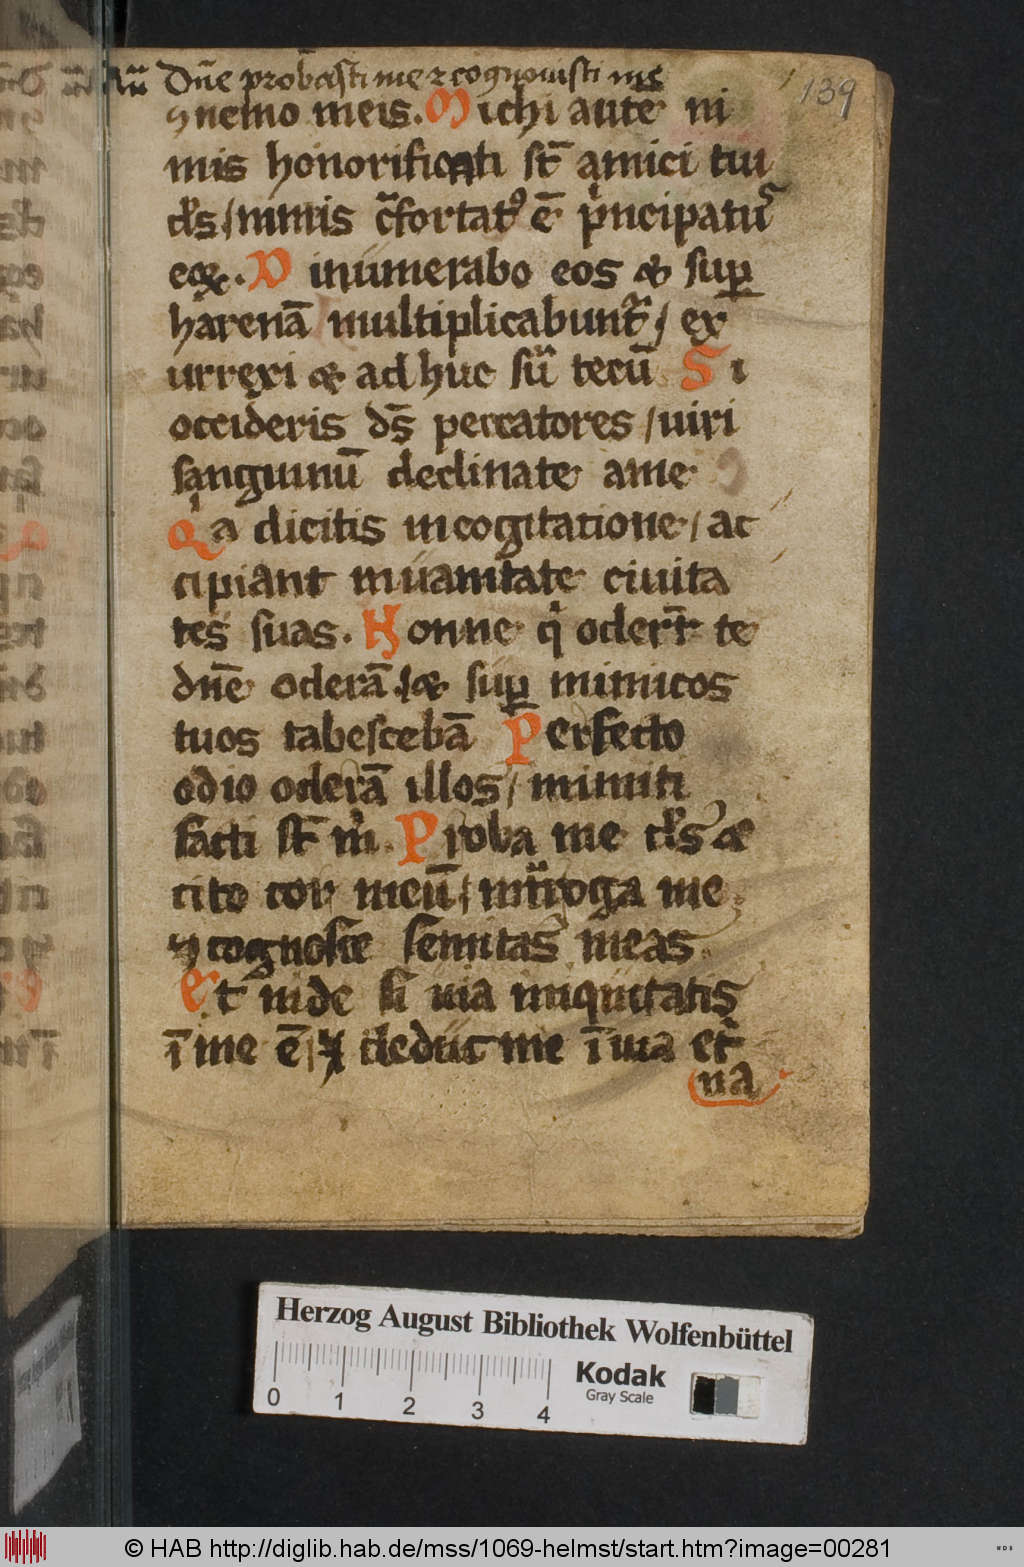 Dn̄e probasti me ⁊ cognouisti me
139
⁊ nemo meis. Michi autē ni
mis honorificati st̄ amici tui
ds / nimis c̄fortatꝰ ē pͥncipatuͬ
eoꝝ. D inumerabo eos & suꝑ
harenā multiplicabuntͬ / ex
urrexi & adhuc sū tecū Si
occideris ds̄ peccatores / uiri
sanguinū declinate ame
Qͥa dicitis incogitatione / ac
cipiant inuanitate ciuita
tes suas. Nonne qͥ oder̄t te
dn̄e oderā / & suꝑ inimicos
tuos tabescebā Perfecto
odio oderā illos / inimiti
facti st̄ mͥ. Proba me ds &
cito cor meū / intͬroga me
⁊ cognosce semitas meas
Et uide si uia iniquitatis
ī me ē / ⁊ deduc me ī uia et̉
na
Herzog August Bibliothek Wolfenbüttel
Kodak
Gray Scale
0 1 2 3 4
© HAB http://diglib.hab.de/mss/1069-helmst/start.htm?image=00281